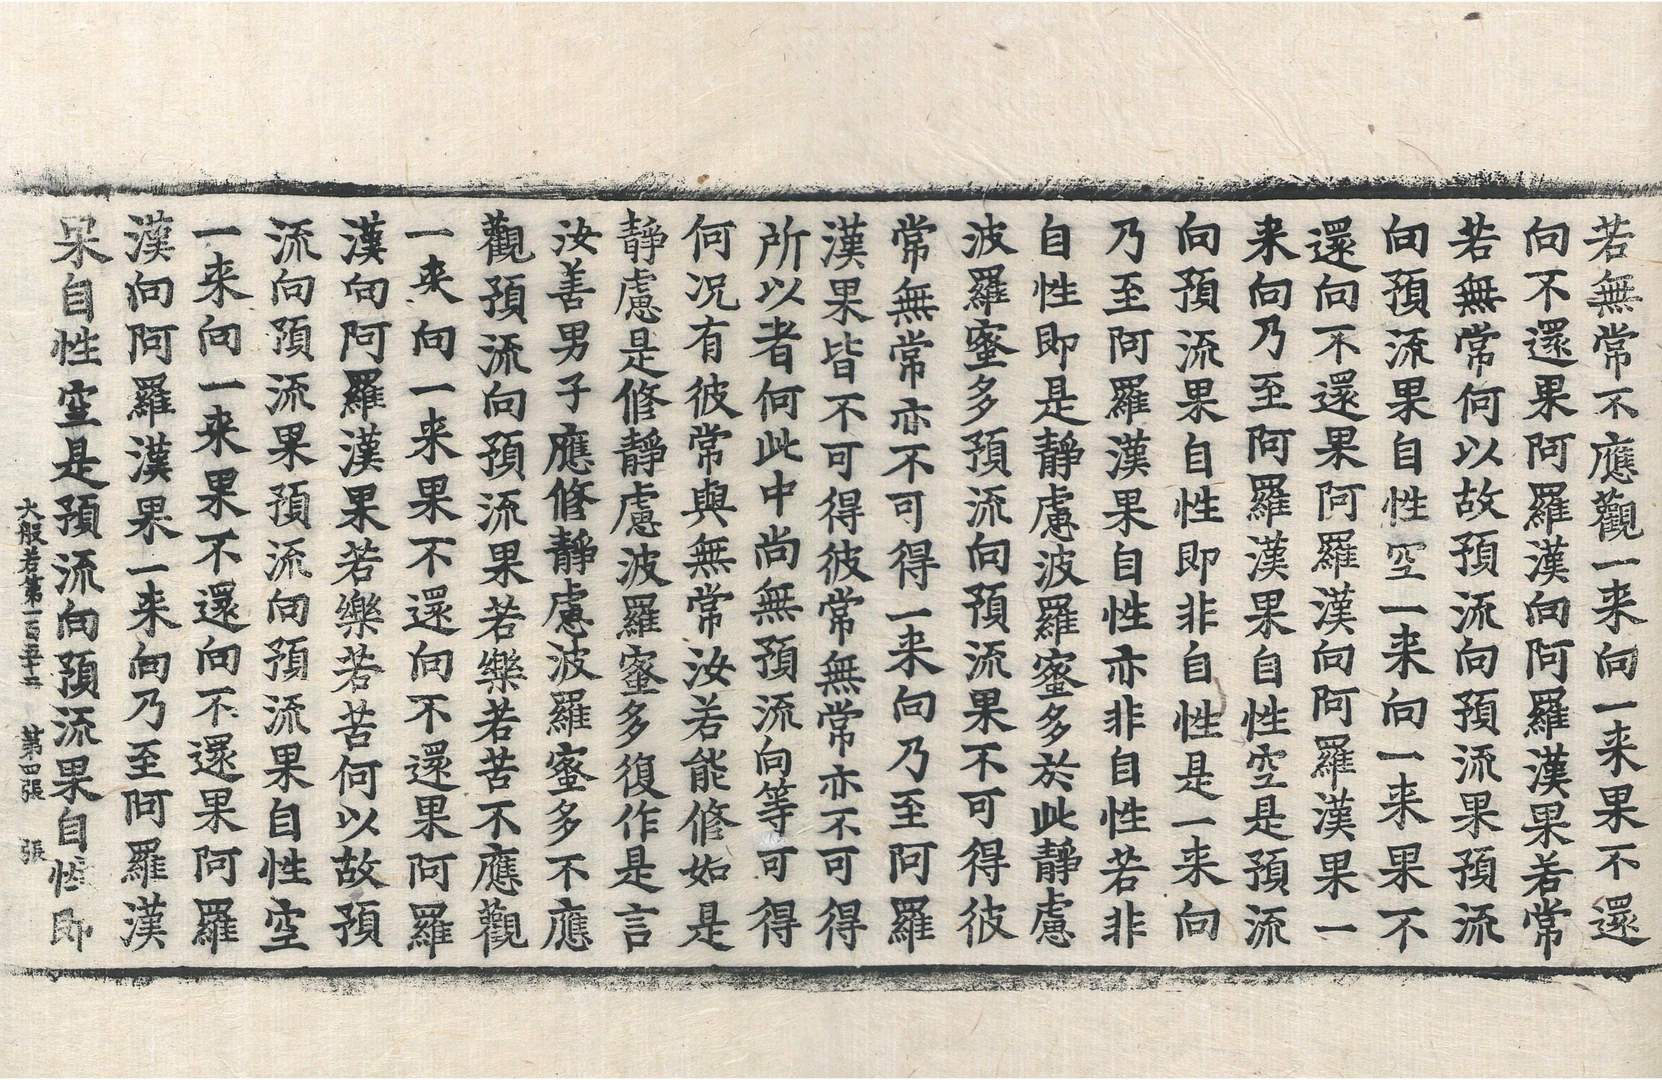 若無常不應觀一来向一来果不還
向不還果阿羅漢向阿羅漢果若常
若無常何以故預流向預流果預流
向預流果自性空一来向一来果不
還向不還果阿羅漢向阿羅漢果一
来向乃至阿羅漢果自性空是預流
向預流果自性即非自性是一来向
乃至阿羅漢果自性亦非自性若非
自性即是靜慮波羅蜜多於此靜慮
波羅蜜多預流向預流果不可得彼
常無常亦不可得一来向乃至阿羅
漢果皆不可得彼常無常亦不可得
所以者何此中尚無預流向等可得
何况有彼常與無常汝若能修如是
靜慮是修靜慮波羅蜜多復作是言
汝善男子應修靜慮波羅蜜多不應
觀預流向預流果若樂若苦不應觀
一来向一来果不還向不還果阿羅
漢向阿羅漢果若樂若苦何以故預
流向預流果預流向預流果自性空
一来向一来果不還向不還果阿羅
漢向阿羅漢果一来向乃至阿羅漢
果自性空是預流向預流果自性即
大般若第一百五十二 第四張 張